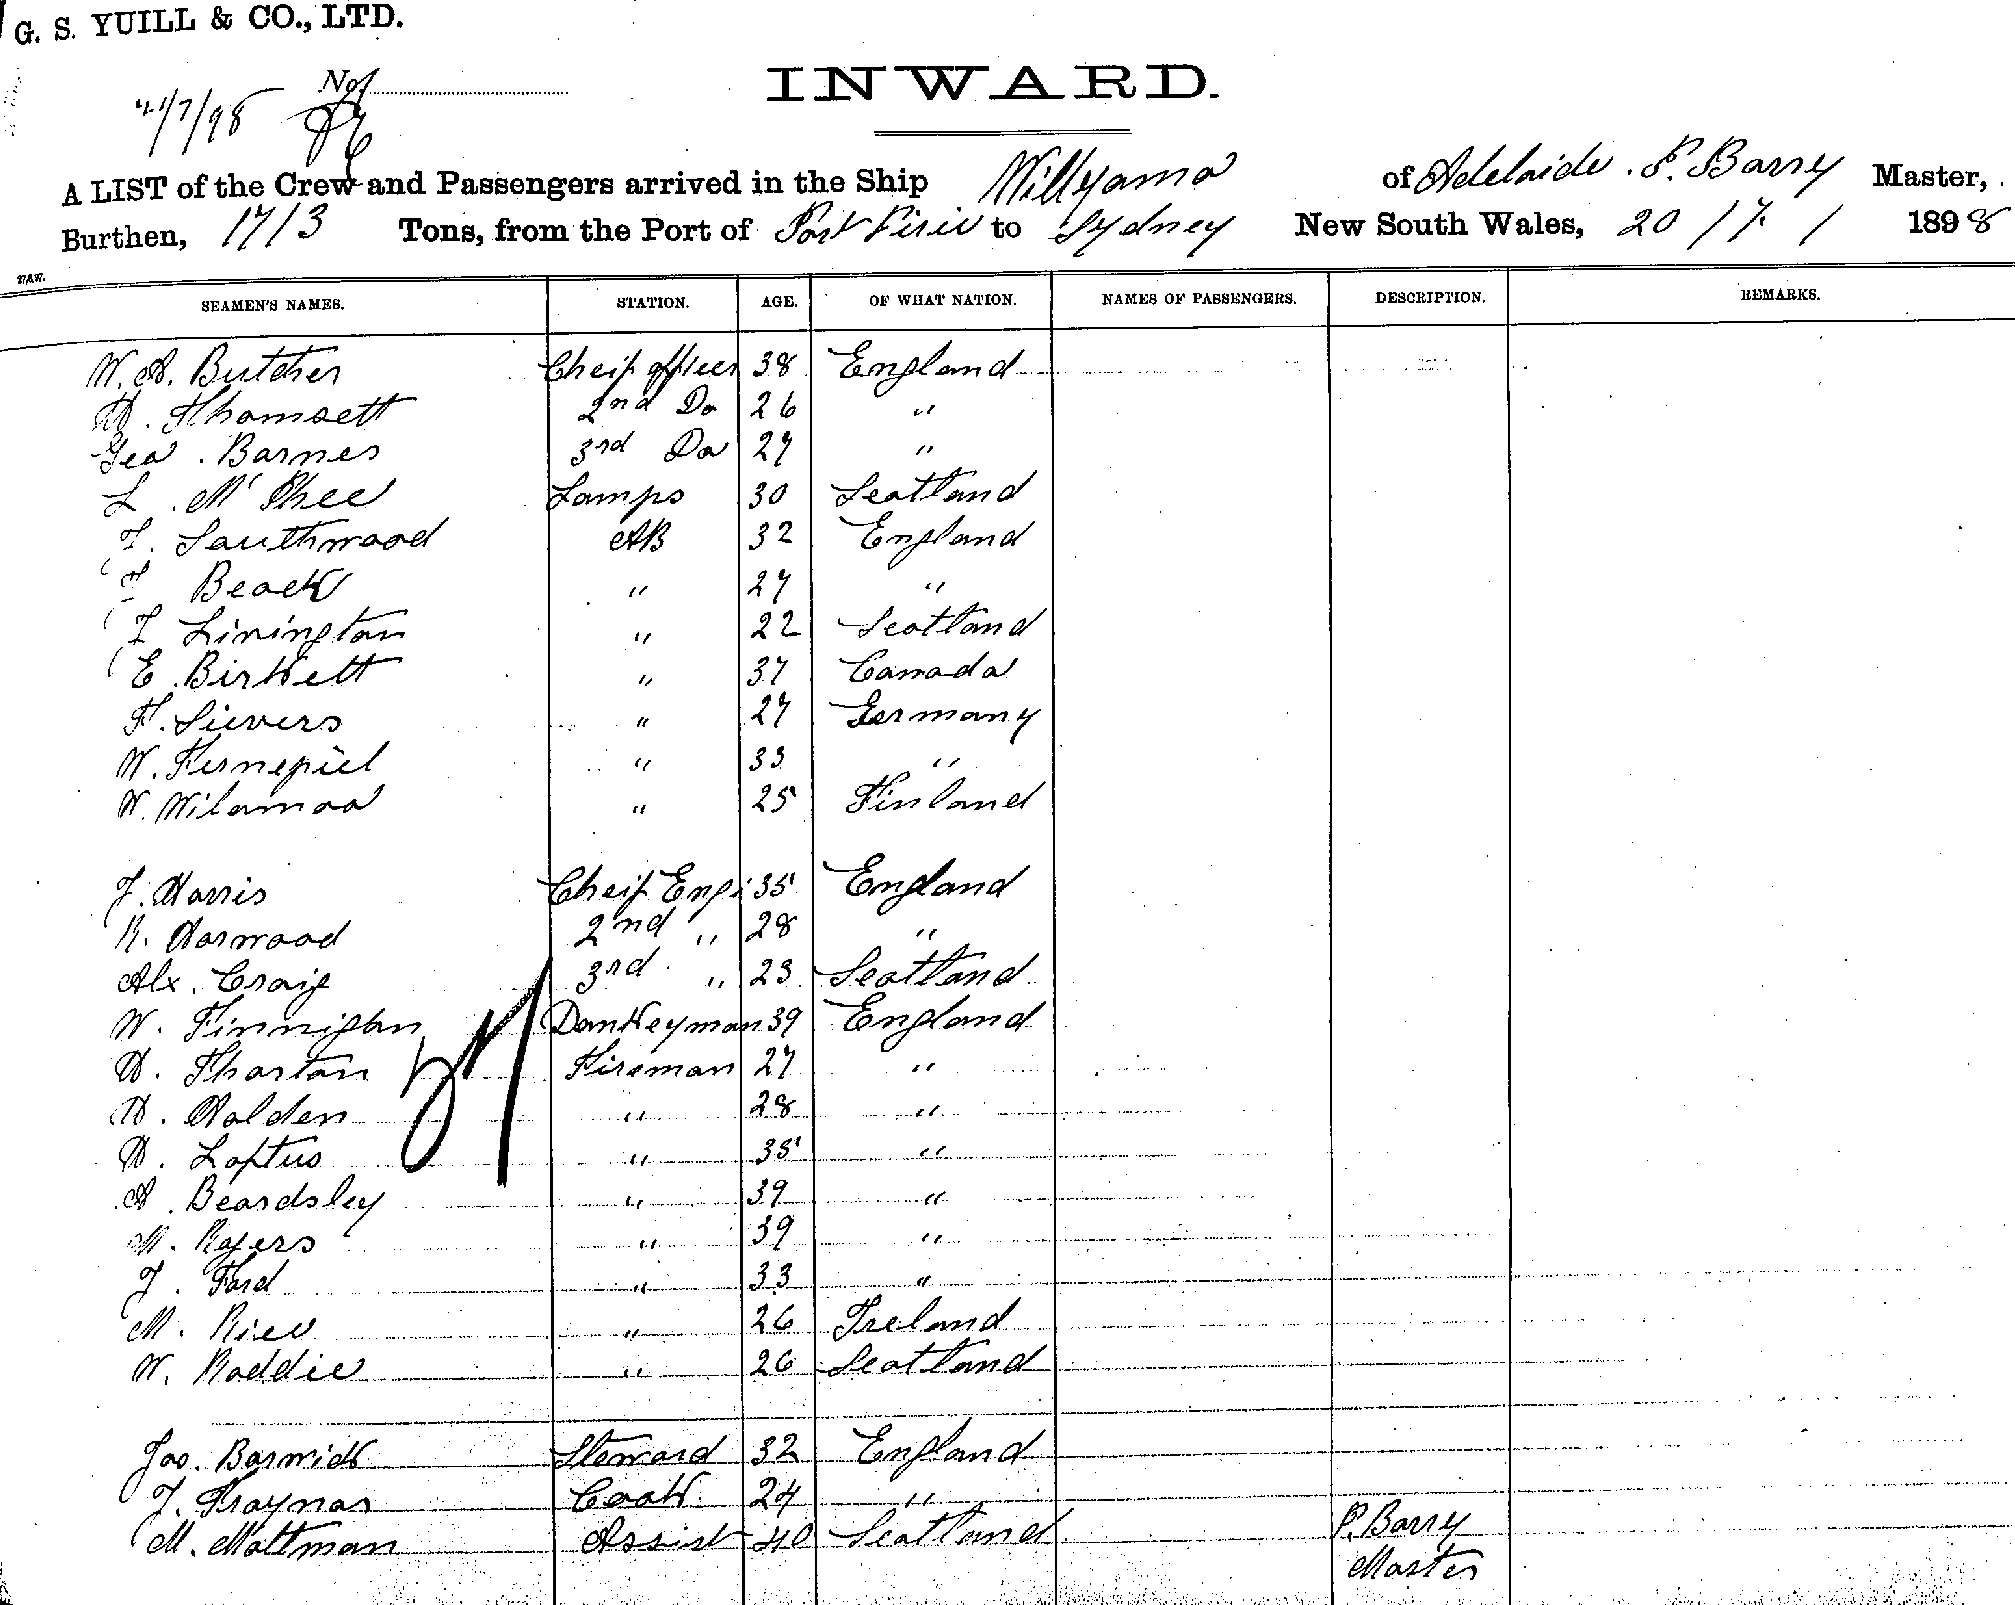 G. S. YUILL & CO., LTD.
INWARD.
No.
21/7/98
A LIST of the Crew and Passengers arrived in the Ship Willyama of Adelaide. P. Barry Master,
Burthen, 1713 Tons, from the Port of Port Pirie to Sydney New South Wales, 20 / 7 / 1898
SEAMEN'S NAMES. STATION. AGE. OF WHAT NATION. NAMES OF PASSENGERS. DESCRIPTION. REMARKS.
W. H. Butcher Cheif officer 38 England
H. Thomsett 2nd Do 26 "
Geo. Barnes 3rd Do 27 "
L. Mc Phee Lamps 30 Scotland
T. Southwood AB 32 England
Beack " 27 "
Livington " 22 Scotland
E. Birkett " 37 Canada
F. Sievers " 27 Germany
W. " 33 "
W. Wilamoa " 25 Finland
J. Harris Cheif Engi 35 England
R. Harwood 2nd " 28 "
Alx. Craig 3rd " 23 Scotland
W. Finnigan Donkeyman 39 England
H. Thorton Fireman 27 "
H. Holden " 28 "
H. Loftus " 35 "
A. Beardsley " 39 "
M. Rogers " 39 "
J. Ford " 33 "
M. Rice " 26 Ireland
W. Roddie " 26 Scotland
Jas. Barwick Steward 32 England
J. Traynor Cook 24 "
M. Mottman Assist 40 Scotland
P. Barry
Master